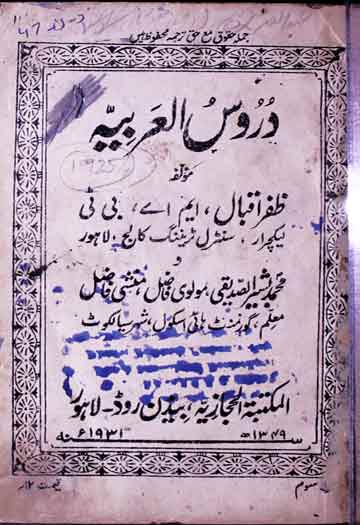 جملہ حقوق مع حق ترجمہ محفوظ ہیں
دُرُوسُ العَرَبِیَّہ
مؤلفہ
ظفر اقبال، ایم اے، بی ٹی
لیکچرار، سنٹرل ٹریننگ کالج، لاہور
و
محمد بشیر الصدیقی، مولوی فاضل، منشی فاضل
معلم، گورنمنٹ ہائی اسکول، شہر سیالکوٹ
المکتبۃ الحجازیہ، بیڈن روڈ - لاہور
۱۳۴۹ھ
۱۹۳۱ء
سوم
قیمت ۱۲ر